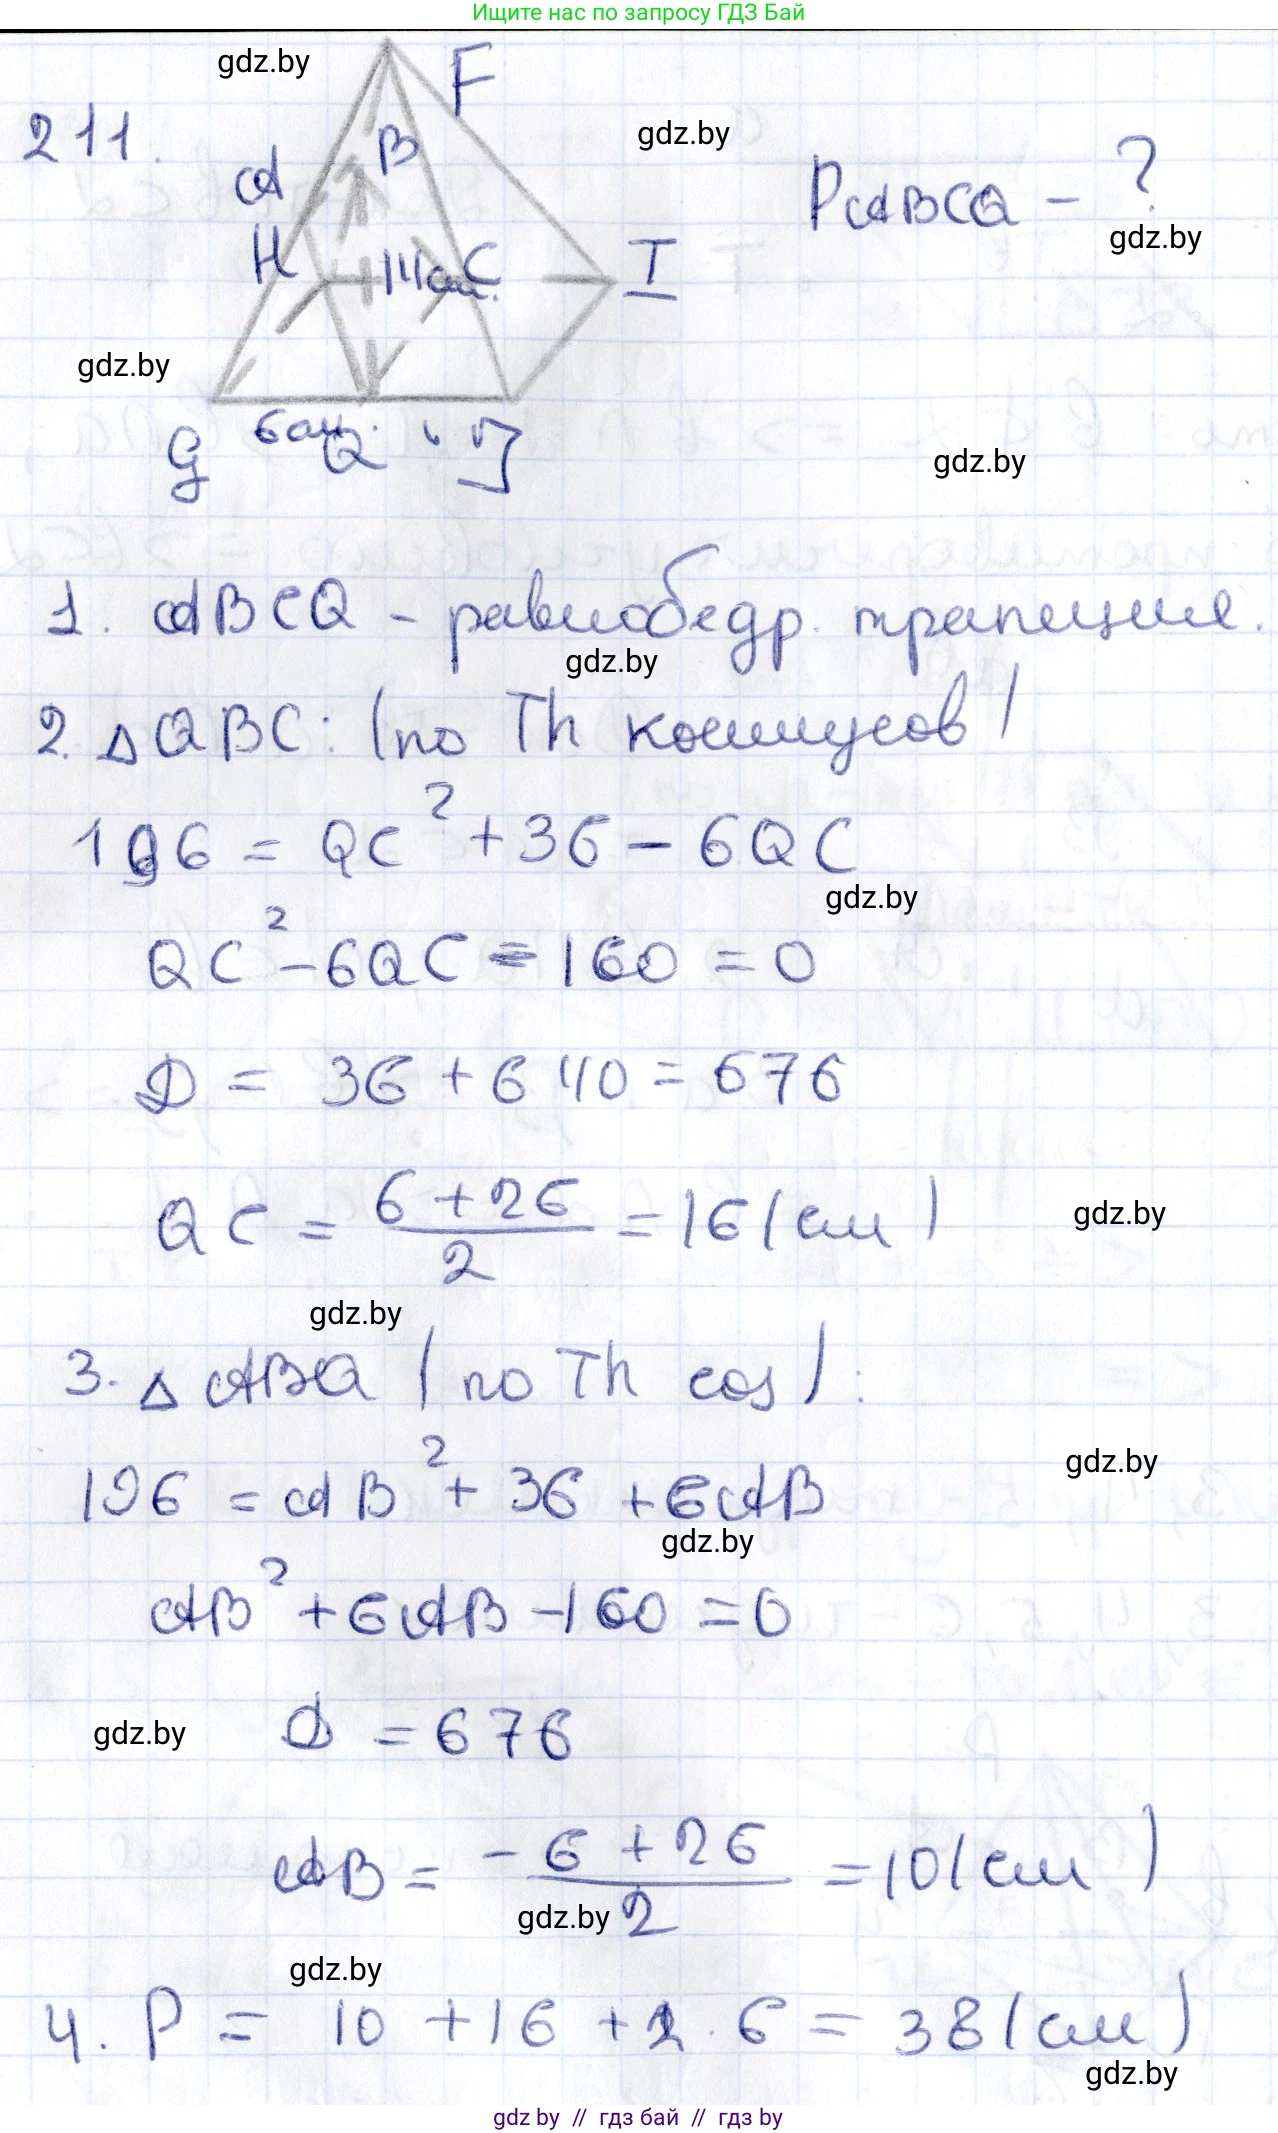 Ищите нас по запросу ГДЗ Бай
gdz.by
F
211.
gdz.by
B
A
P ABCQ - ?
gdz.by
H
14 см.
C
I
gdz.by
6 см.
G
Q
J
gdz.by
1. ABCQ - равнобедр. трапеция.
gdz.by
2. △QBC: (по Th косинусов)
196 = QC² + 36 - 6QC
gdz.by
QC² - 6QC - 160 = 0
D = 36 + 640 = 676
QC = (6 + 26)/2 = 16 (см)
gdz.by
gdz.by
3. △ABQ (по Th cos):
gdz.by
196 = AB² + 36 + 6AB
gdz.by
AB² + 6AB - 160 = 0
gdz.by
D = 676
AB = (-6 + 26)/2 = 10 (см)
gdz.by
gdz.by
4. P = 10 + 16 + 2 · 6 = 38 (см)
gdz.by
gdz by // гдз бай // gdz by